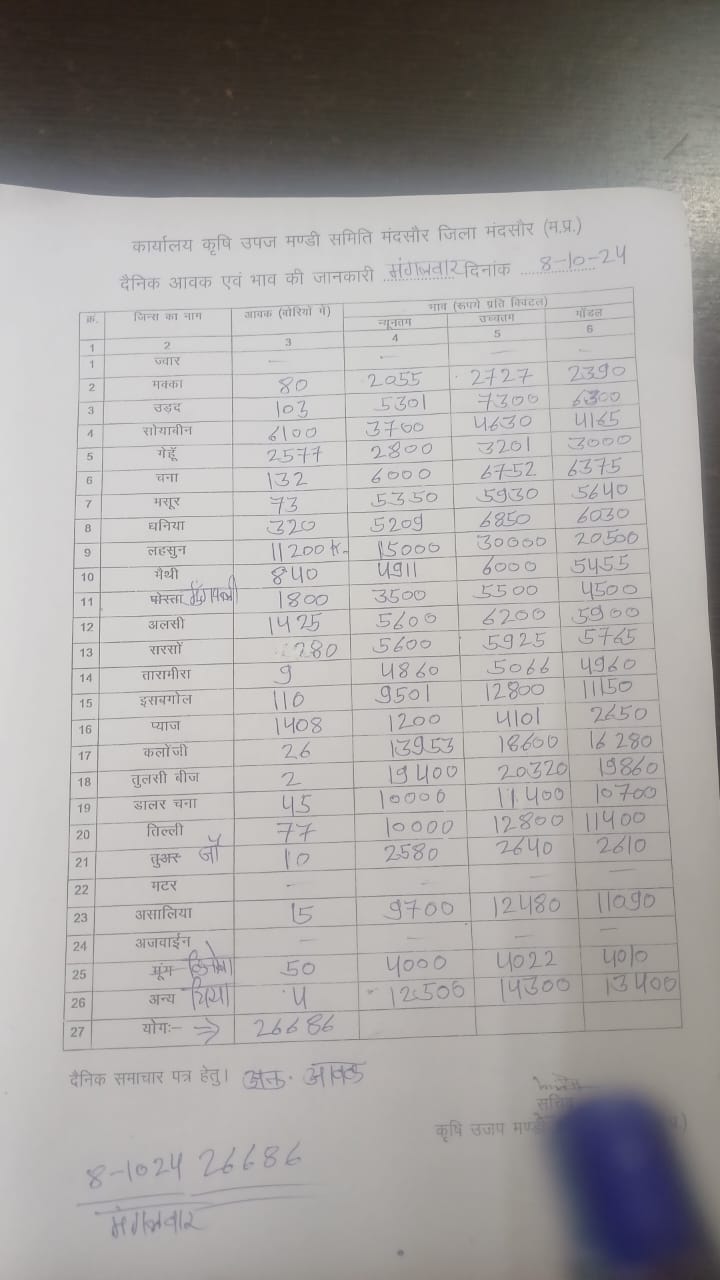 कार्यालय कृषि उपज मण्डी समिति मंदसौर जिला मंदसौर (म.प्र.)
दैनिक आवक एवं भाव की जानकारी मंगलवार दिनांक 8-10-24
क्र. जिन्स का नाम आवक (बोरियों में) भाव (रूपये प्रति क्विंटल)
न्यूनतम उच्चतम मॉडल
1 2 3 4 5 6
1 ज्वार — — — —
2 मक्का 80 2055 2727 2390
3 उड़द 103 5301 7300 6300
4 सोयाबीन 6100 3700 4630 4165
5 गेहूँ 2577 2800 3201 3000
6 चना 132 6000 6752 6375
7 मसूर 73 5350 5930 5640
8 धनिया 320 5209 6850 6030
9 लहसुन 11200 15000 30000 20500
10 मैथी 840 4911 6000 5455
11 पोस्ता मूंगफली 1800 3500 5500 4500
12 अलसी 1425 5600 6200 5900
13 सरसों 280 5600 5925 5765
14 तारामीरा 9 4860 5066 4960
15 इसबगोल 110 9501 12800 11150
16 प्याज 1408 1200 4101 2650
17 कलौंजी 26 13953 18600 16280
18 तुलसी बीज 2 19400 20320 19860
19 डालर चना 45 10000 11400 10700
20 तिल्ली 77 10000 12800 11400
21 तुअर जौ 10 2580 2640 2610
22 मटर — — — —
23 असालिया 15 9700 12480 11090
24 अजवाईन — — — —
25 मूंग 50 4000 4022 4010
26 अन्य चिया 4 12500 14300 13400
27 योगः- 26686
दैनिक समाचार पत्र हेतु। आवक
सचिव
कृषि उजप मण्डी
8-1024 26686
मंगलवार